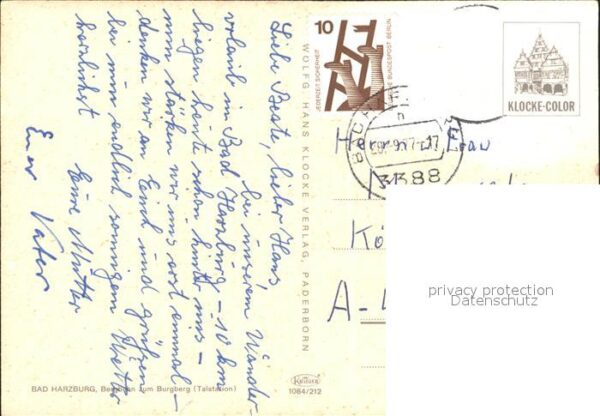 Liebe Beate, lieber Hans
bei unserem Wander-
urlaub in Bad Harzburg – 10 km
liegen heute schon hinter uns –
nun stärken wir uns erst einmal –
denken wir an Euch und grüßen
bei nun endlich sonnigem Wetter
herzlichst
Eure Mutter
Euer Vater
BAD HARZBURG, Bergbahn zum Burgberg (Talstation)
WOLFG. HANS KLOCKE VERLAG, PADERBORN
1064/212
10
JEDERZEIT SICHERHEIT
DEUTSCHE BUNDESPOST BERLIN
KLOCKE-COLOR
3388
Herrn u. Frau
Kö
A-
privacy protection
Datenschutz